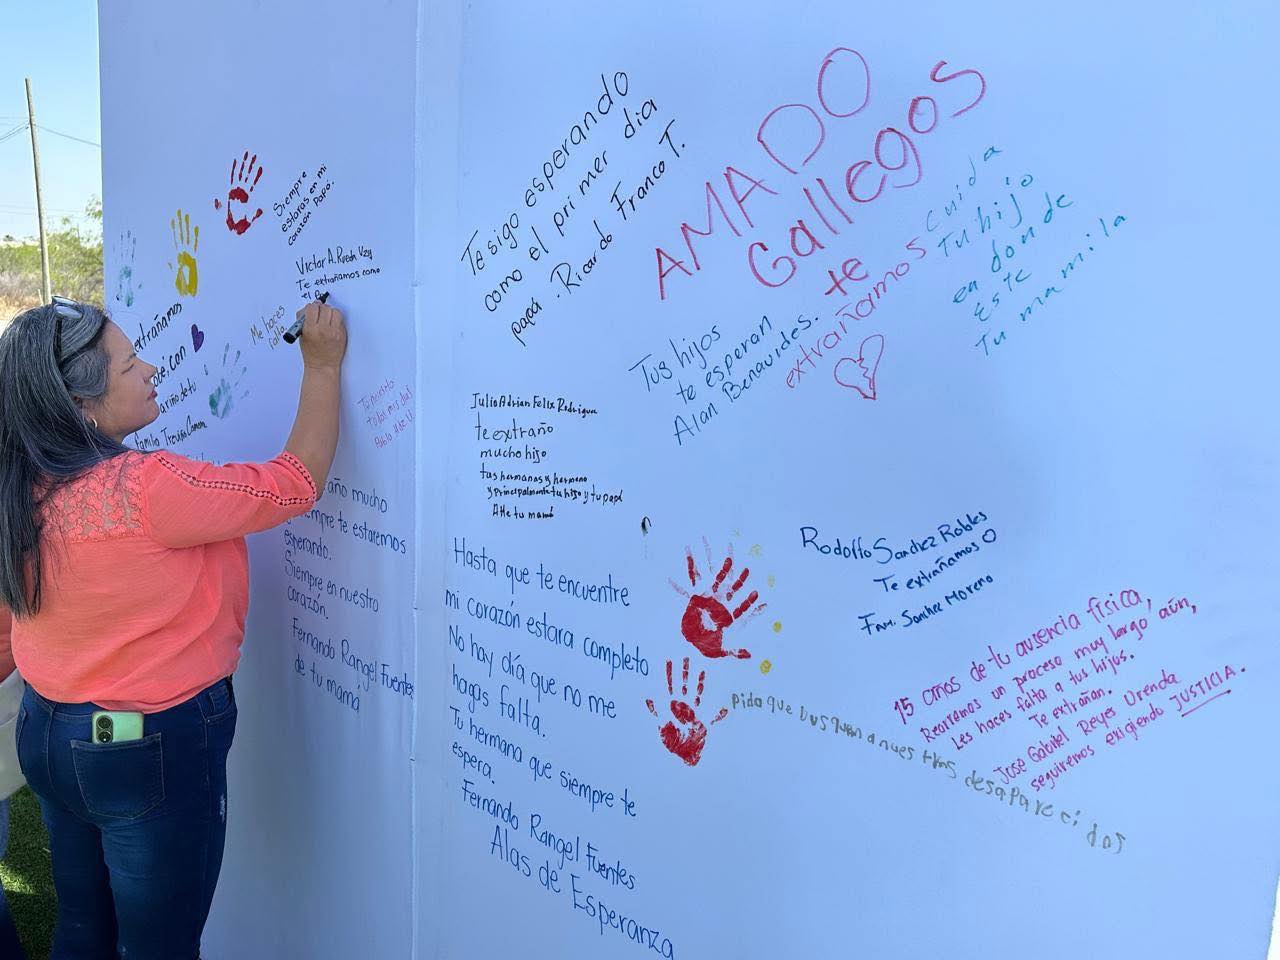 Siempre
estaras en mi
corazón Papá.
Victor A. Rueda
Te extrañamos como
el
Me haces
falta.
extrañamos
con
familia Treviño
mucho
siempre te estaremos
esperando.
Siempre en nuestro
corazón.
Fernando Rangel Fuentes
de tu mamá
Te sigo esperando
como el primer dia
papá. Ricardo Franco T.
AMADO
Gallegos
te
extrañamos
cuida
Tu hijo
en donde
Este
Tu mamila
Tus hijos
te esperan
Alan Benavides.
Julio Adrian Felix Rodriguez
te extraño
mucho hijo
tus hermanas y hermano
y principalmente tu hijo y tu papá
Atte tu mamá
Hasta que te encuentre
mi corazón estara completo
No hay día que no me
hagas falta.
Tu hermana que siempre te
espera.
Fernando Rangel Fuentes
Alas de Esperanza
Rodolfo Sanchez Robles
Te extrañamos
Fam. Sanchez Moreno
Pido que busquen a nuestros desaparecidos
15 años de tu ausencia física,
Recorremos un proceso muy largo aún,
Les haces falta a tus hijos.
Te extrañan.
José Gabriel Reyes Urenda
seguiremos exigiendo JUSTICIA.